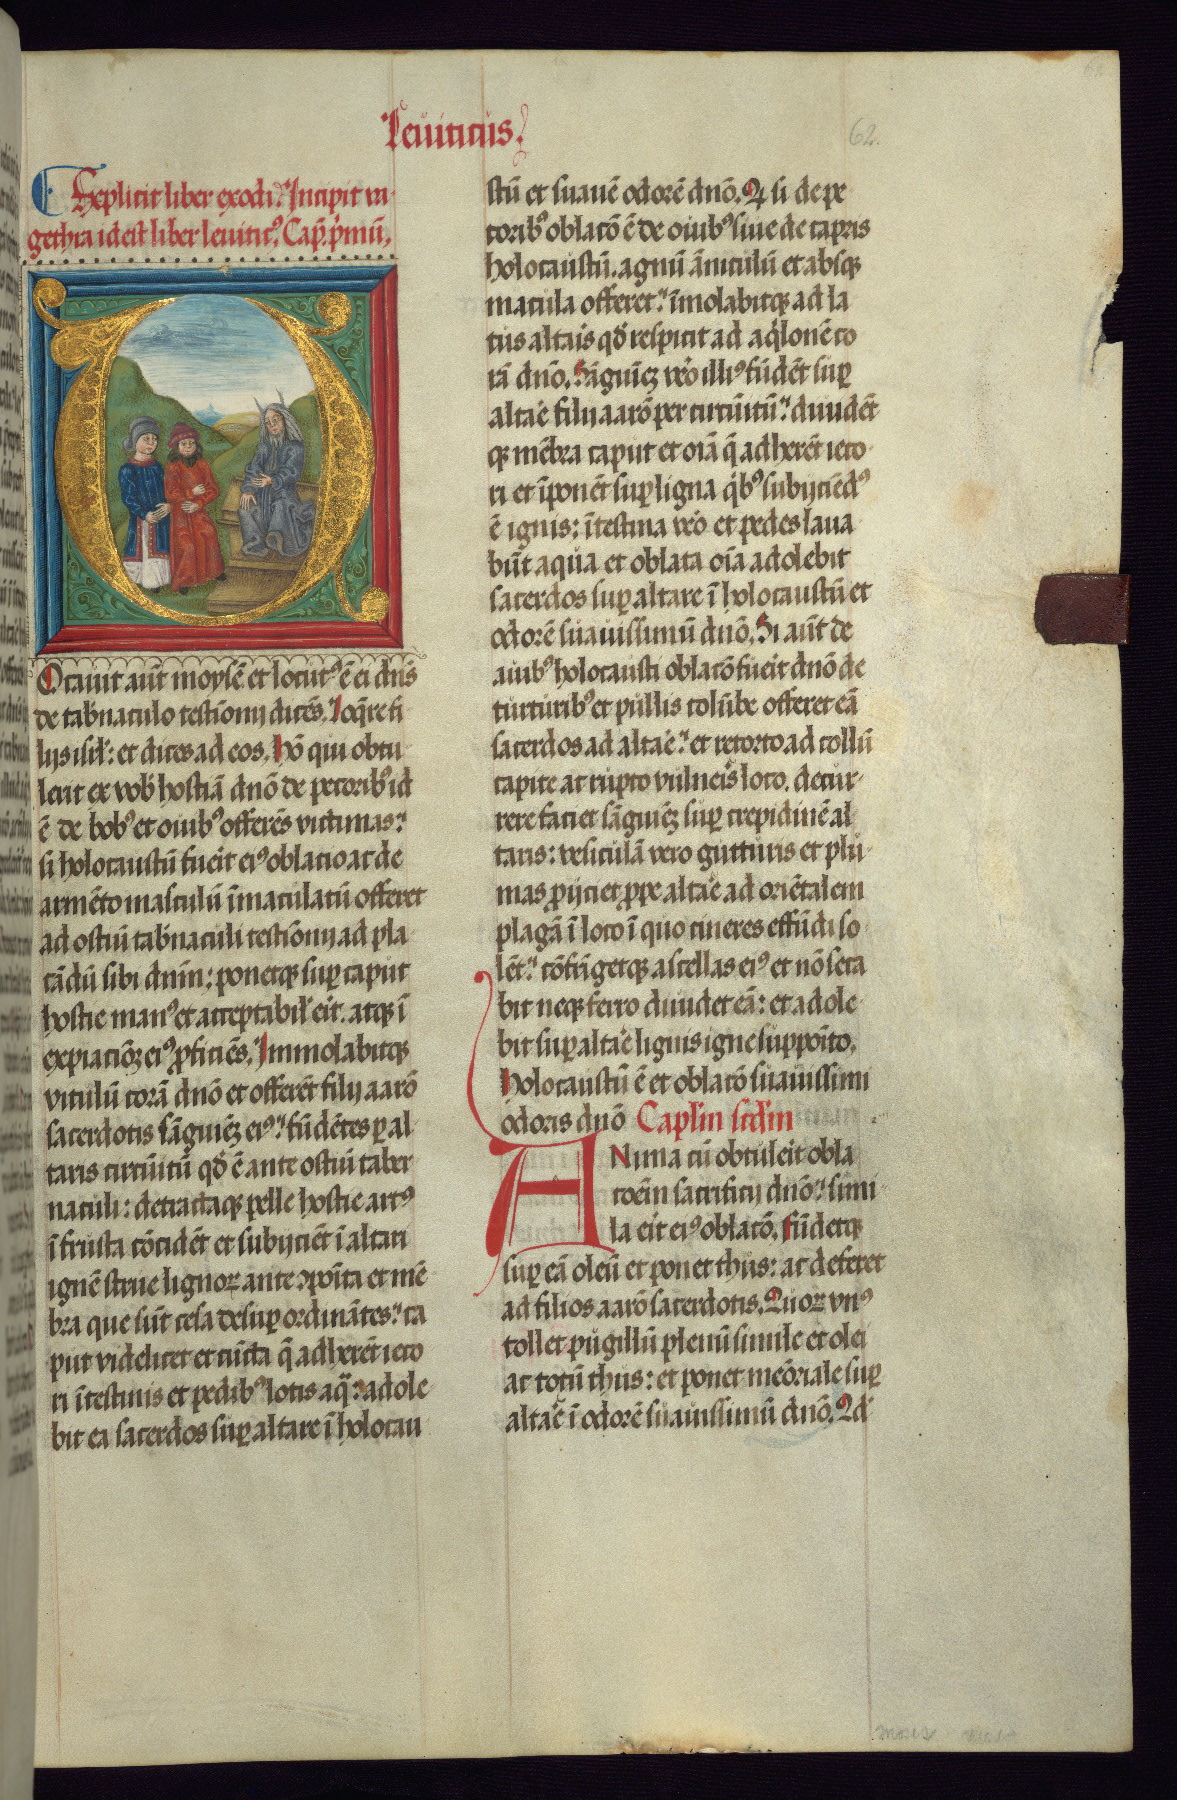 Leuiticus.
62.
Explicit liber exodi. Incipit va
gethra id est liber leuitic⁹. Cap. pͥmū.
Ocauit aūt moysē et locut⁹ ē ei dn̄s
de tab̄naculo testīonij dicēs. loq̄re fi
lijs isrl̄: et dices ad eos. hō qui obtu
lerit ex vob̄ hostiā dn̄o de pecorib⁹ id
ē de bob⁹ et ouib⁹ offerēs victimas.
si holocaustū fuēit ei⁹ oblatio ac de
armēto masculū īmaculatū offeret
ad ostiū tab̄naculi testīonij ad pla
cādū sibi dn̄m: ponetqꝫ suꝑ caput
hostie man⁹ et acceptabil̄ eīt. atqꝫ ī
expiaciōꝫ ei⁹ ꝓficiēs. Immolabitqꝫ
vitulū corā dn̄o et offerēt filij aarō
sacerdotis sāguiēꝫ ei⁹. fūdētes ꝑ al
taris circūitū qd̄ ē ante ostiū taber
naculi: detractaqꝫ pelle hostie art⁹
ī frusta cōcidēt et subijciēt ī altari
ignē strue lignoꝝ ante ꝯpoīta et mē
bra que sūt cesa desuꝑ ordināntes. ca
put videlicet et cūcta q̄ adherēt ieco
ri ītestinis et pedib⁹ lotis aq̄: adole
bit ea sacerdos suꝑ altare ī holocau
stū et suauē odorē dn̄o. Qd̄ si de pe
corib⁹ oblatō ē de ouib⁹ siue de capris
holocaustū. agnū āniculū et absqꝫ
macula offeret. īmolabitqꝫ ad la
tus altaīs qd̄ respicit ad aqͥlonē co
rā dn̄o. sāguiēꝫ vēo illi⁹ fūdēt suꝑ
altaē filij aarō per circūitū. diuidēt
qꝫ mēbra caput et oīa q̄ adherēt ieco
ri et īponēt suꝑ ligna qͥb⁹ subijciēd⁹
ē ignis: ītestina vēo et pedes laua
būt aqua et oblata oīa adolebit
sacerdos suꝑ altare ī holocaustū et
odorē suauissimū dn̄o. Si aūt de
auib⁹ holocausti oblatō fuēit dn̄o de
turturib⁹ et pullis colūbe offeret eā
sacerdos ad altaē. et retorto ad collū
capite ac rupto vulneīs loco. decur
rere faciet sāguiēꝫ suꝑ crepidinē al
taris: vesiculā vero gutturis et plu
mas ꝓijciet ꝓpe altaē ad oriētalem
plagā ī loco ī quo cineres effūdi so
lēt. cōfrīgetqꝫ ascellas ei⁹ et nō seca
bit neqꝫ ferro diuidet eā: et adole
bit suꝑ altaē lignis igne suppoīto.
holocaustū ē et oblatō suauissimi
odoris dn̄o Capl̄m scd̄m
ANima cū obtuleīt obla
coēm sacrificij dn̄o. simi
la eīt ei⁹ oblatō. fūdetqꝫ
suꝑ eā oleū et ponet thus: ac deferet
ad filios aarō sacerdotis. Quoꝝ vn⁹
tollet pugillū plenū simile et olei
ac totū thus: et ponet meōriale suꝑ
altaē ī odorē suauissimū dn̄o. Qd̄